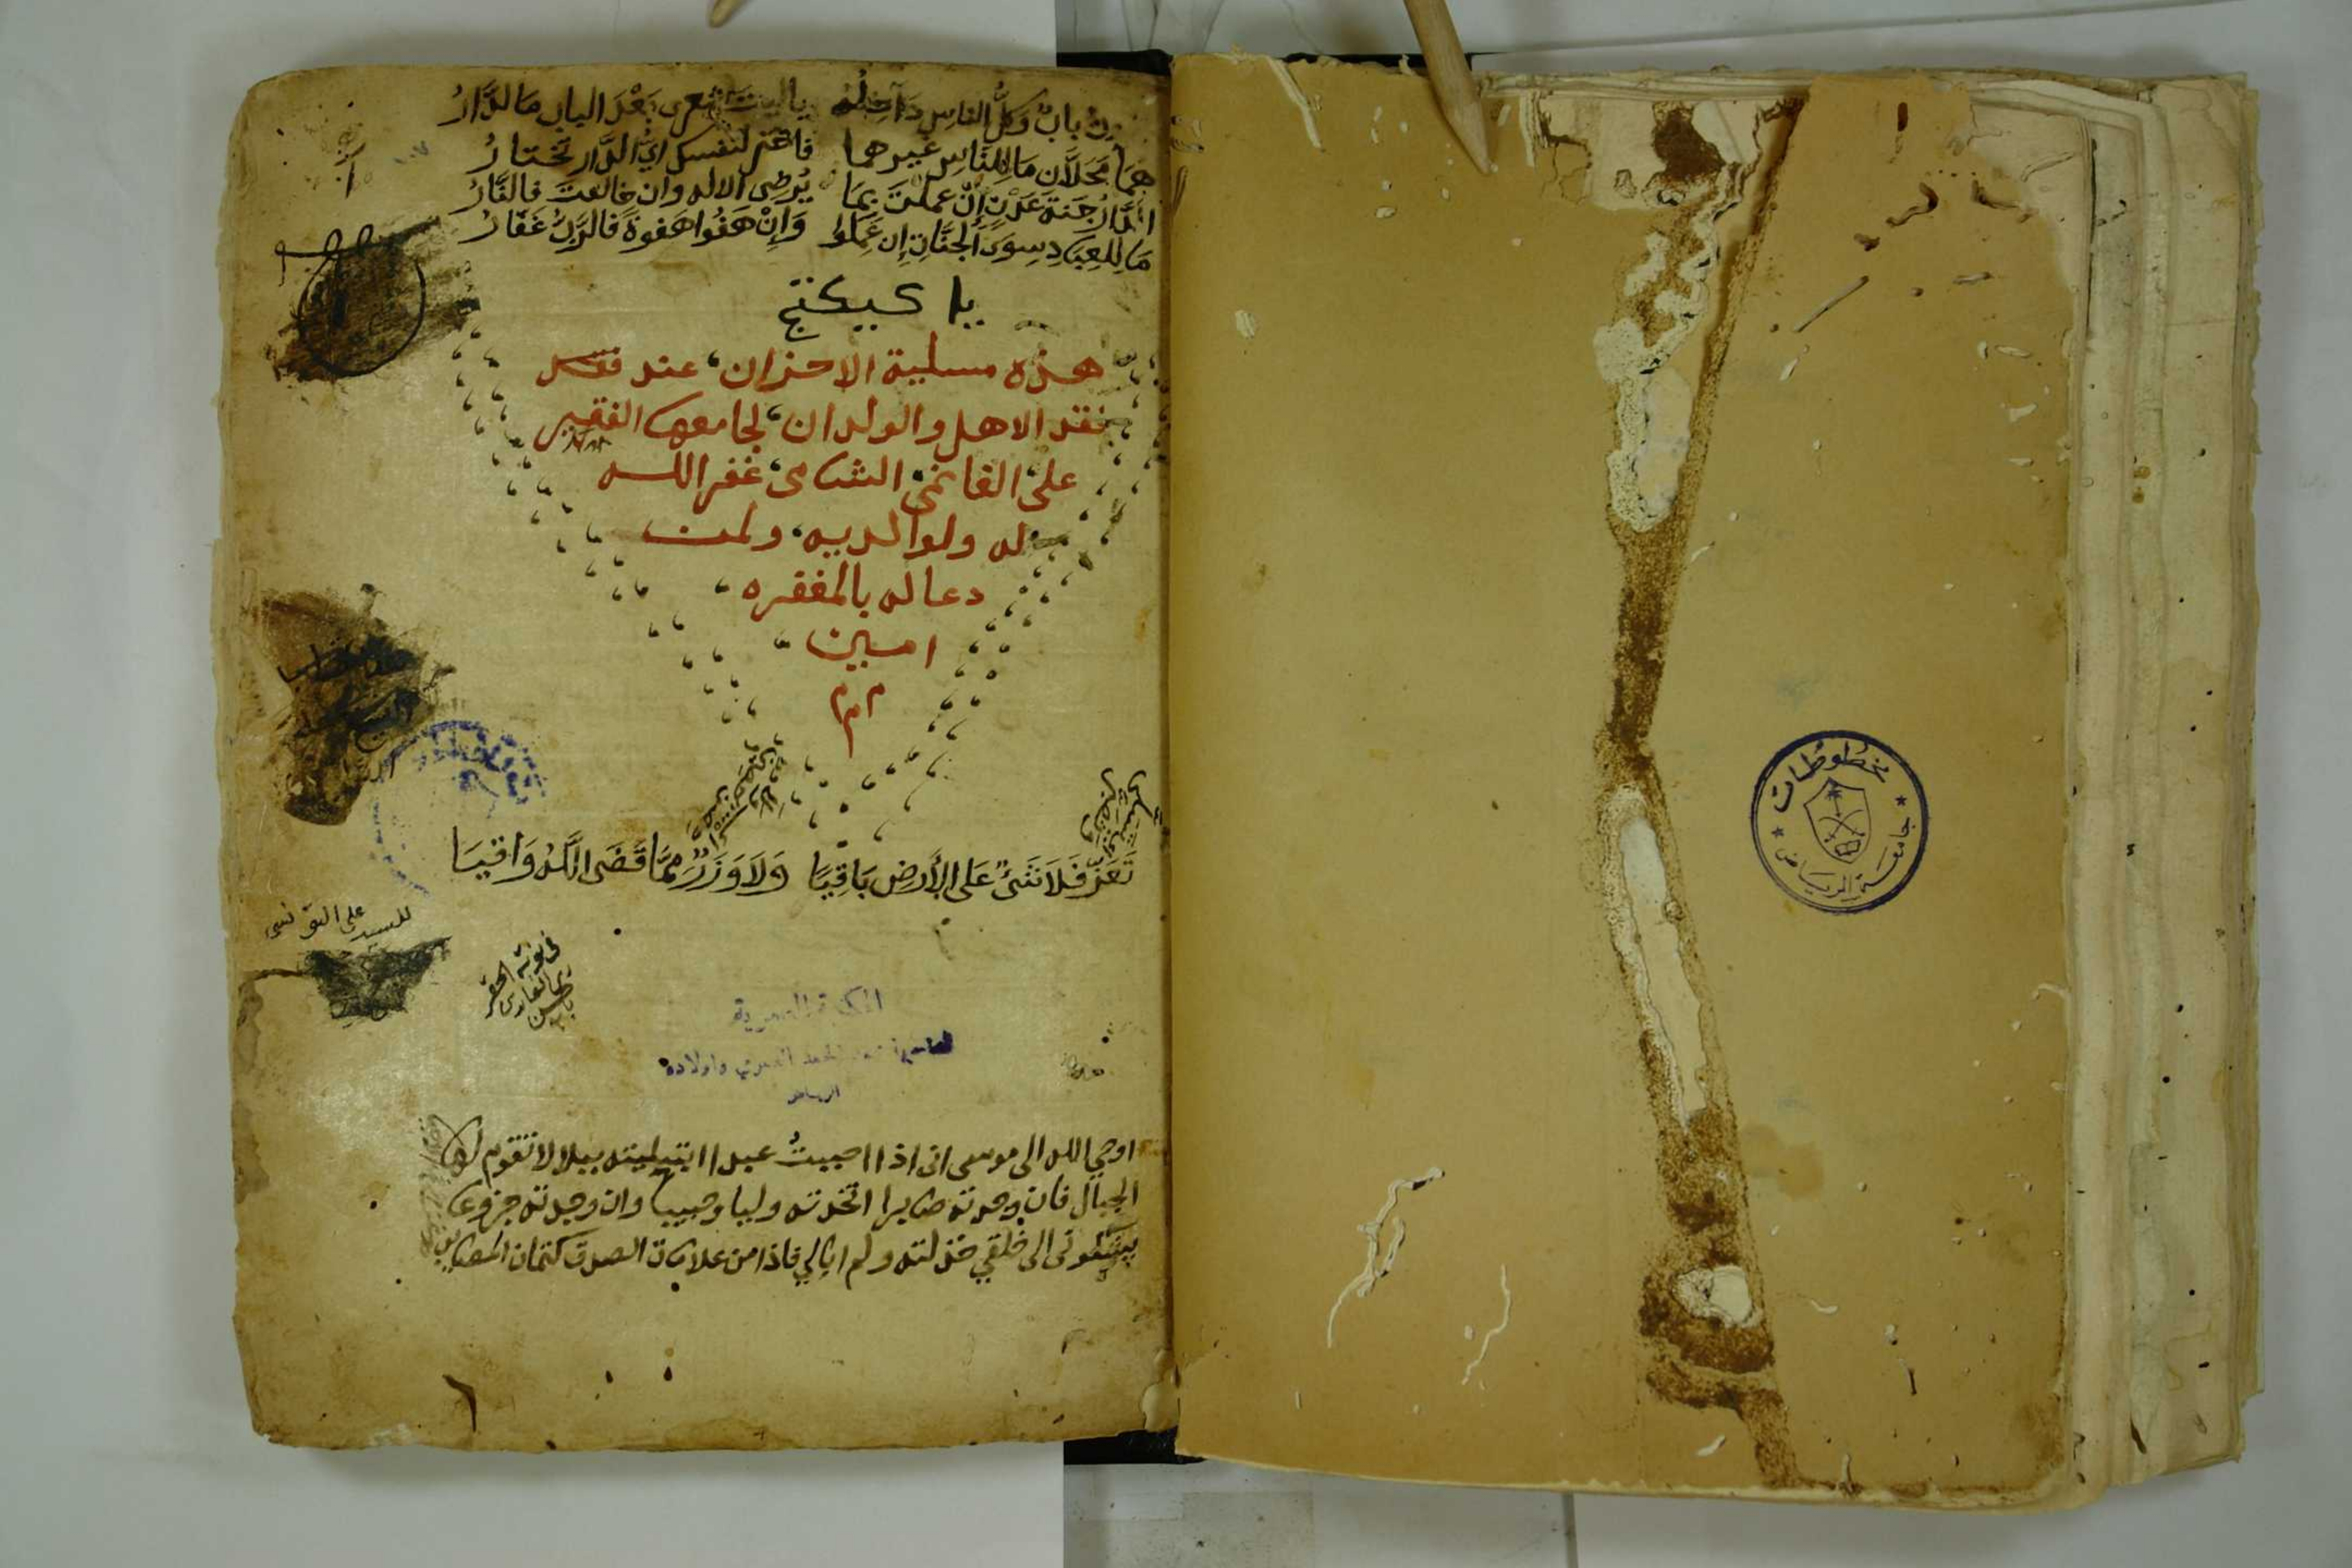 باب وكل الناس داخله يا ليت شعرى بعد الباب ما الدار
هما محلان ما للناس غيرهما فاختر لنفسك اي الدار تختار
الدار جنة عدن إن عملت بما يرضى الاله وان خالفت فالنار
ما للعباد سوى الجنان إن عملوا وإن هفوا هفوة فالرب غفار
يا كبيكتج
هذه مسلية الاحزان، عند فقد
فقد الاهل والولدان، لجامعها الفقير
على الغانمى الشامى، غفر الله
له ولوالديه، ولمن
دعا له بالمغفره
امين
م م م
تعز فلا شئ على الأرض باقيا ولا وزر مما قضى الله واقيا
للسيد على التونسي
في نوبة
المكتبة العمرية
واولاده
الرياض
اوحي الله الى موسى انى اذا احببت عبدا ابتليته ببلا لا تقوم لها
الجبال فان وجدته صابرا اتخذته وليا وحبيبا وان وجدته جزوعا
يشكونى الى خلقي خذلته ولم ابالي فاذا من علامات الصدق كتمان المصايب
مخطوطات
جامعة الرياض